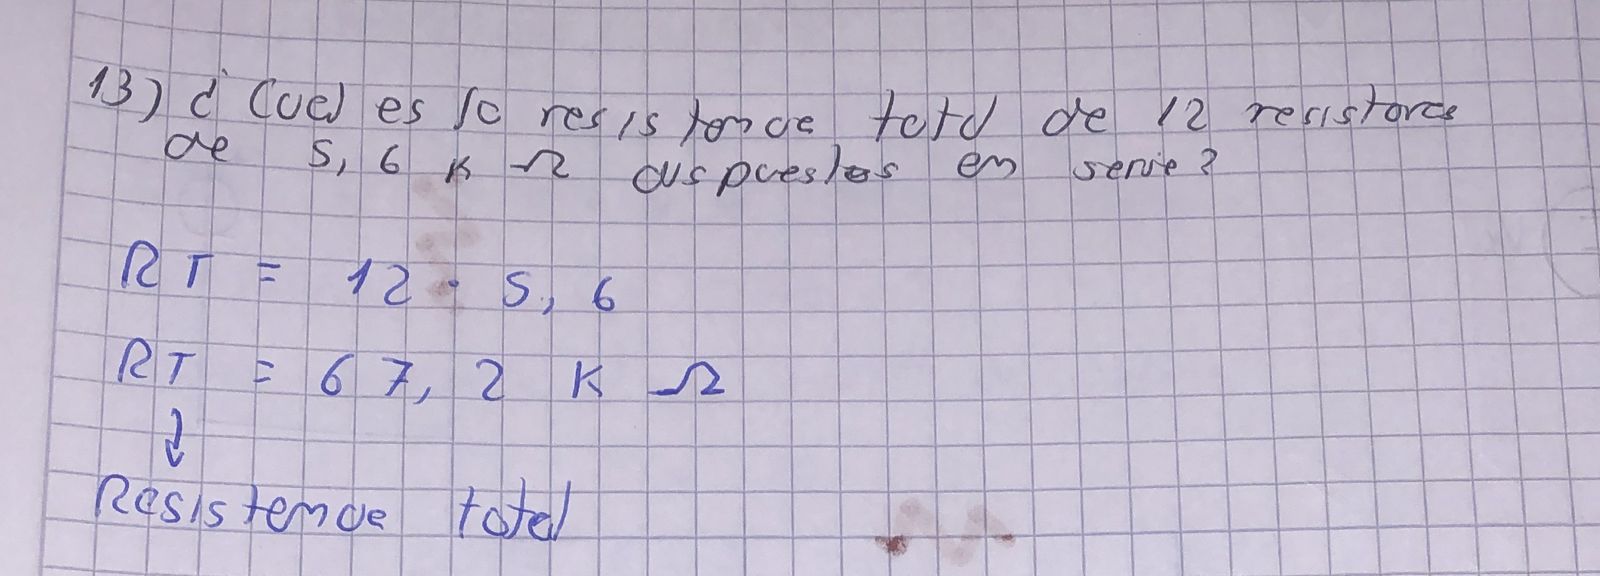 13) ¿Cual es la resistencia total de 12 resistores
de 5,6 K Ω dispuestos en serie?
RT = 12 · 5,6
RT = 67,2 K Ω
↓
Resistencia total